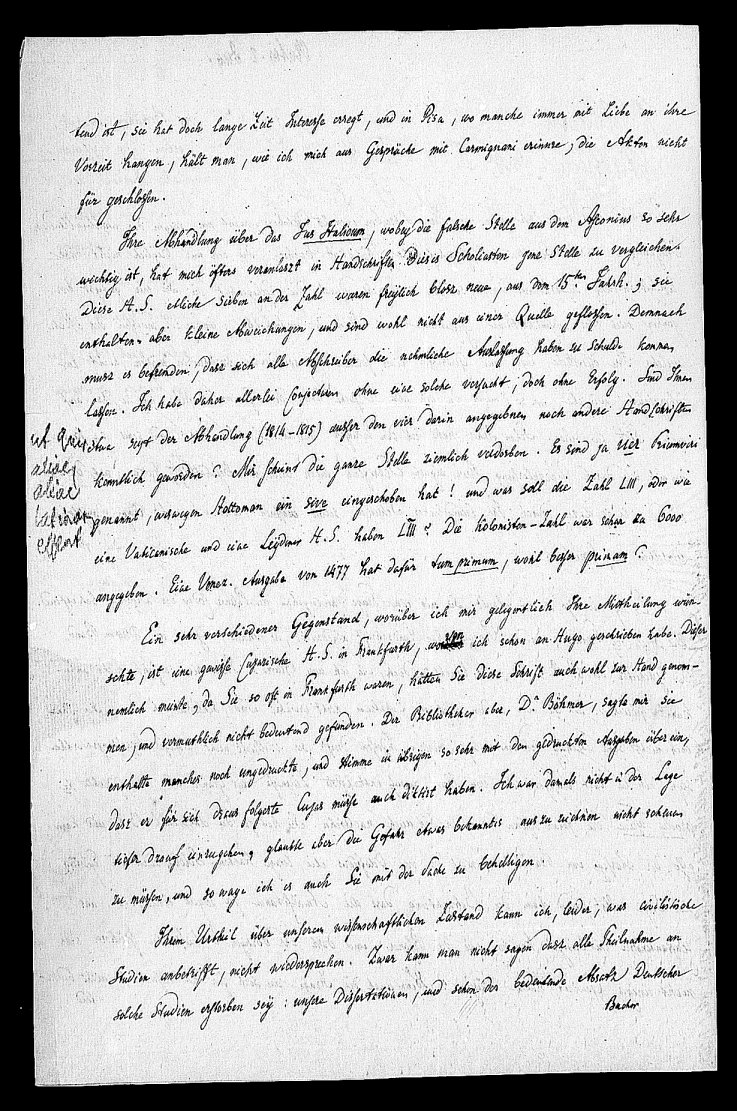 tend ist, sie hat doch lange Zeit Interesse erregt, und in Pisa, wo manche immer mit Liebe an ihre
Vorzeit hangen, hält man, wie ich mich aus Gespräche mit Carmignani erinnre, die Akten nicht
für geschlossen.
Ihre Abhandlung über das Jus Italicum, wobey die falsche Stelle aus dem Asconius so sehr
wichtig ist, hat mich öfters veranlaszt in Handschriften dieses Scholiasten jene Stelle zu vergleichen.
Diese H.S. etliche sieben an der Zahl waren freylich blosz neue, aus dem 15ten Jahrh.; sie
enthalten aber kleine Abweichungen, und sind wohl nicht aus einer Quelle geflossen. Demnach
musz es befremden, dasz sich alle Abschreiber die nehmliche Auslassung haben zu Schulde kommen
lassen. Ich habe daher allerlei Conjecturen ohne eine solche versucht, doch ohne Erfolg. Sind Ihnen
etwa seyt der Abhandlung (1814-1815) ausser den vier darin angegebnen noch andere Handschriften
kenntlich geworden? Mir scheint die ganze Stelle ziemlich verdorben. Es sind ja vier Triumviri
genannt, weswegen Hottoman ein sive eingeschoben hat! und was soll die Zahl LIII, oder wie
eine Vaticanische und eine Leydner H.S. haben LIII? Die Kolonisten-Zahl war schon zu 6000
angegeben. Eine Venez. Ausgabe von 1477 hat dafür tum primum, wohl besser primam?
ut
aliae
aliae
Ein sehr verschiedener Gegenstand, worüber ich mir gelegentlich Ihre Mittheilung wün-
schte, ist eine gewisse Cujazische H.S. in Frankfurth, wovon ich schon an Hugo geschrieben habe. Dieser
nemlich meinte, da Sie so oft in Frankfurth waren, hätten Sie diese Schrift auch wohl zur Hand genom-
men, und vermuthlich nicht bedeutend gefunden. Der Bibliothekar aber, Dr Böhmer, sagte mir sie
enthalte manches noch ungedruckte, und stimme im übrigen so sehr mit den gedruckten Ausgaben überein,
dasz er für sich draus folgerte Cujas müsse auch diktirt haben. Ich war damals nicht in der Lage
tiefer drauf einzugehen, glaubte aber die Gefahr etwas bekanntes auszuzeichnen nicht scheuen
zu müssen, und so wage ich es auch Sie mit der Sache zu behelligen.
Ihrem Urtheil über unseren wissenschaftlichen Zustand kann ich, leider, was civilistische
Studien anbetrifft, nicht wiedersprechen. Zwar kann man nicht sagen dasz alle Theilnahme an
solche Studien erstorben sey: unsere Dissertationen, und schon der bedeutende Absatz Deutscher
Bücher